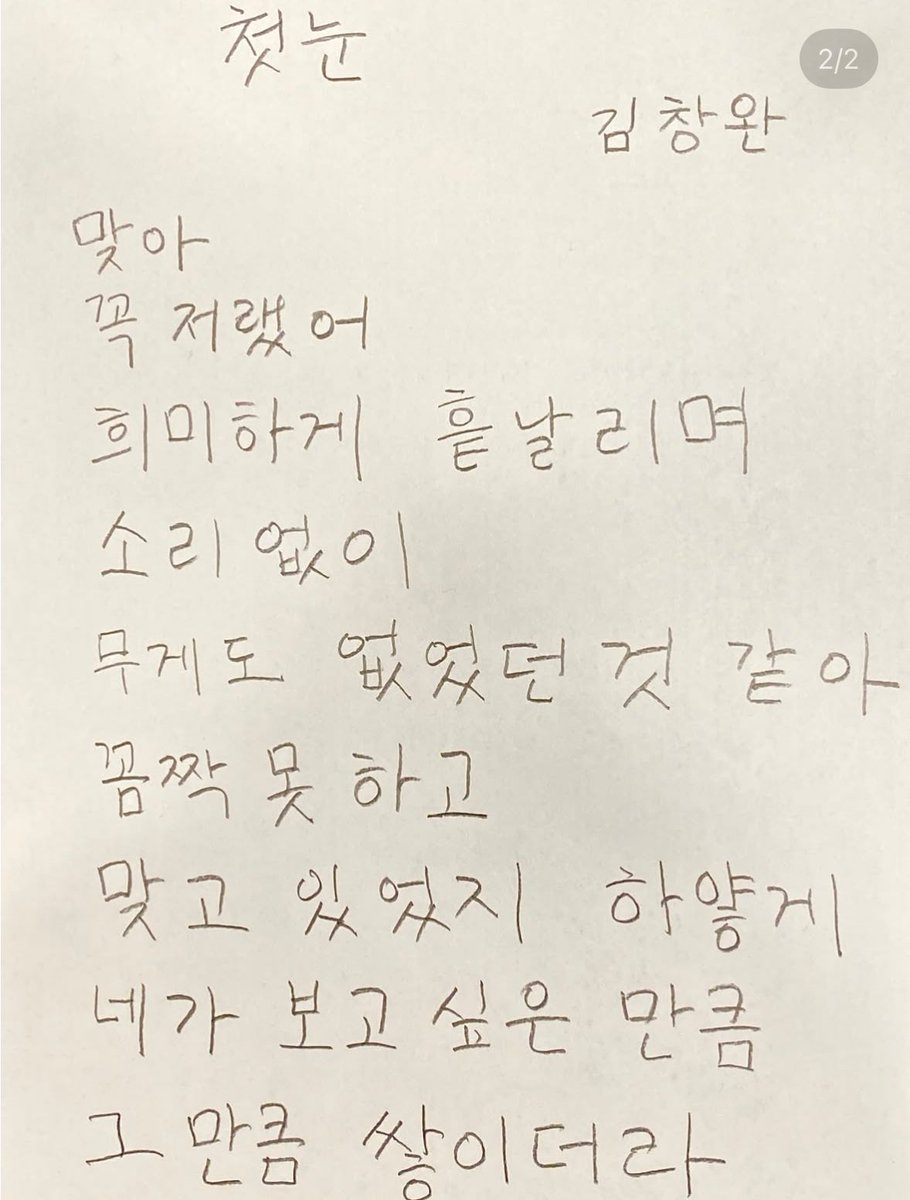 첫눈
2/2
김창완
맞아
꼭 저랬어
희미하게 흩날리며
소리 없이
무게도 없었던 것 같아
꼼짝 못 하고
맞고 있었지 하얗게
네가 보고 싶은 만큼
그 만큼 쌓이더라